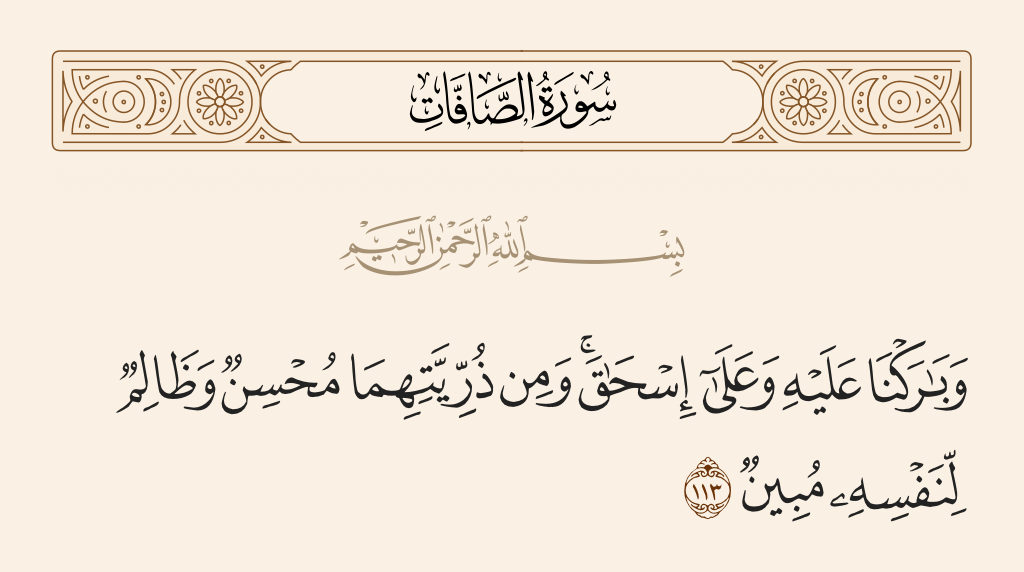 سُورَةُ الصَّافَّاتِ
بِسْمِ ٱللَّهِ ٱلرَّحْمَٰنِ ٱلرَّحِيمِ
وَبَٰرَكْنَا عَلَيْهِ وَعَلَىٰٓ إِسْحَٰقَ ۚ وَمِن ذُرِّيَّتِهِمَا مُحْسِنٌ وَظَالِمٌ
لِّنَفْسِهِۦ مُبِينٌ ١١٣